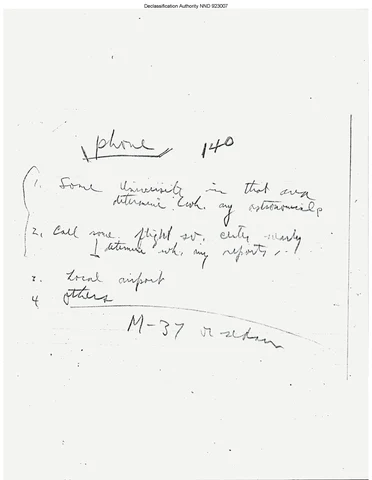 Declassification Authority NND 923007
phone 140
1. Some University in that area
determine wh. any astronomical
2. Call some flight sv. city nearby
determine wh. any reports
3. Local airport
4 others
M-37 or sedan